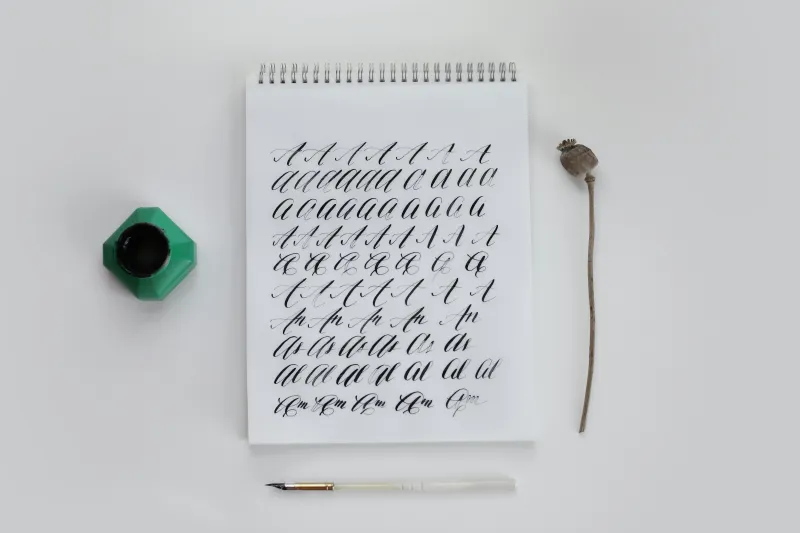 A A A A A A A
a a a a a a a a a a a
a a a a a a a a a a
A A A A A A A A A
A A A A A A A
A A A A A A A
An An An An An
as as as as as as
al al al al al al al
Am Am Am Am Am